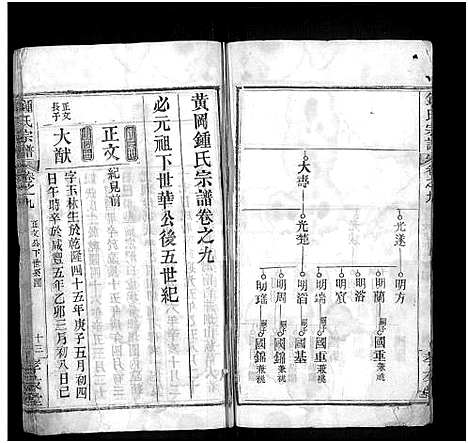 鍾氏宗譜
卷之九
大壽
光楚
光遂
明方
明蘭
明宸
明治
明瑞
明周
明瑤
嗣子國重兼祧
國基
嗣子國錦兼祧
國重兼祧
國錦兼祧
黃岡鍾氏宗譜卷之九
必元祖下世華公後五世紀
正文
紀見前
正文長子
大猷
字玉林生於乾隆四十五年庚子五月初四
日午時卒於咸豐五年乙卯三月初八日己
鍾氏宗譜
卷之九
正文公下世系圖
十三